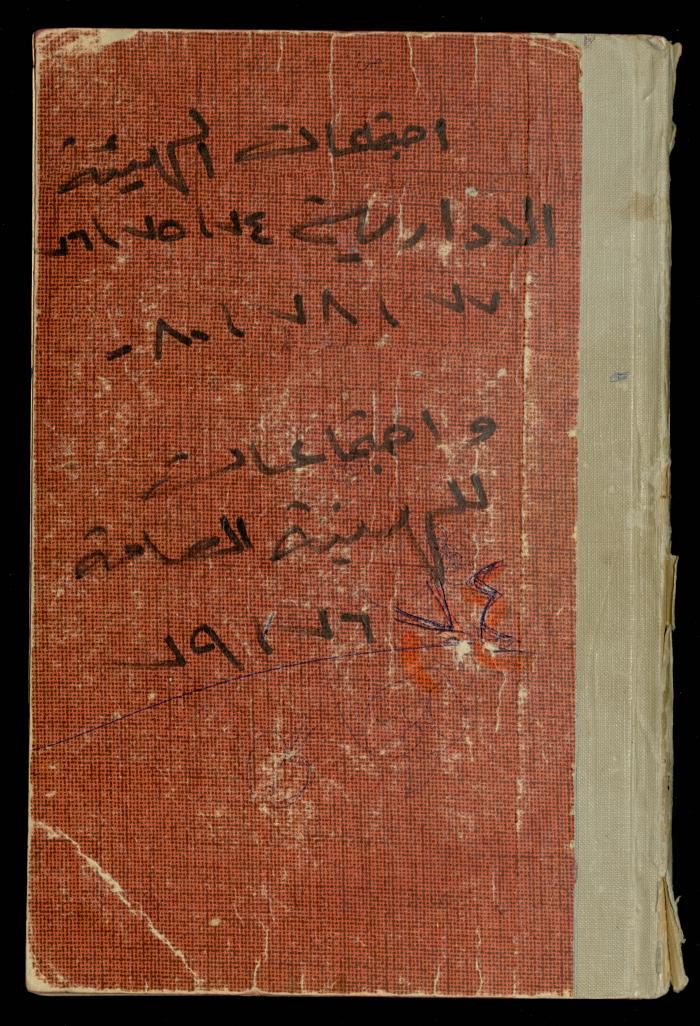 اجتماعات الهيئة
الادارية ٧٤، ٧٥، ٧٦،
٧٧، ٧٨، ٨٠ -
و اجتماعات
للهيئة العامة
٧٤
٧٦، ٧٩